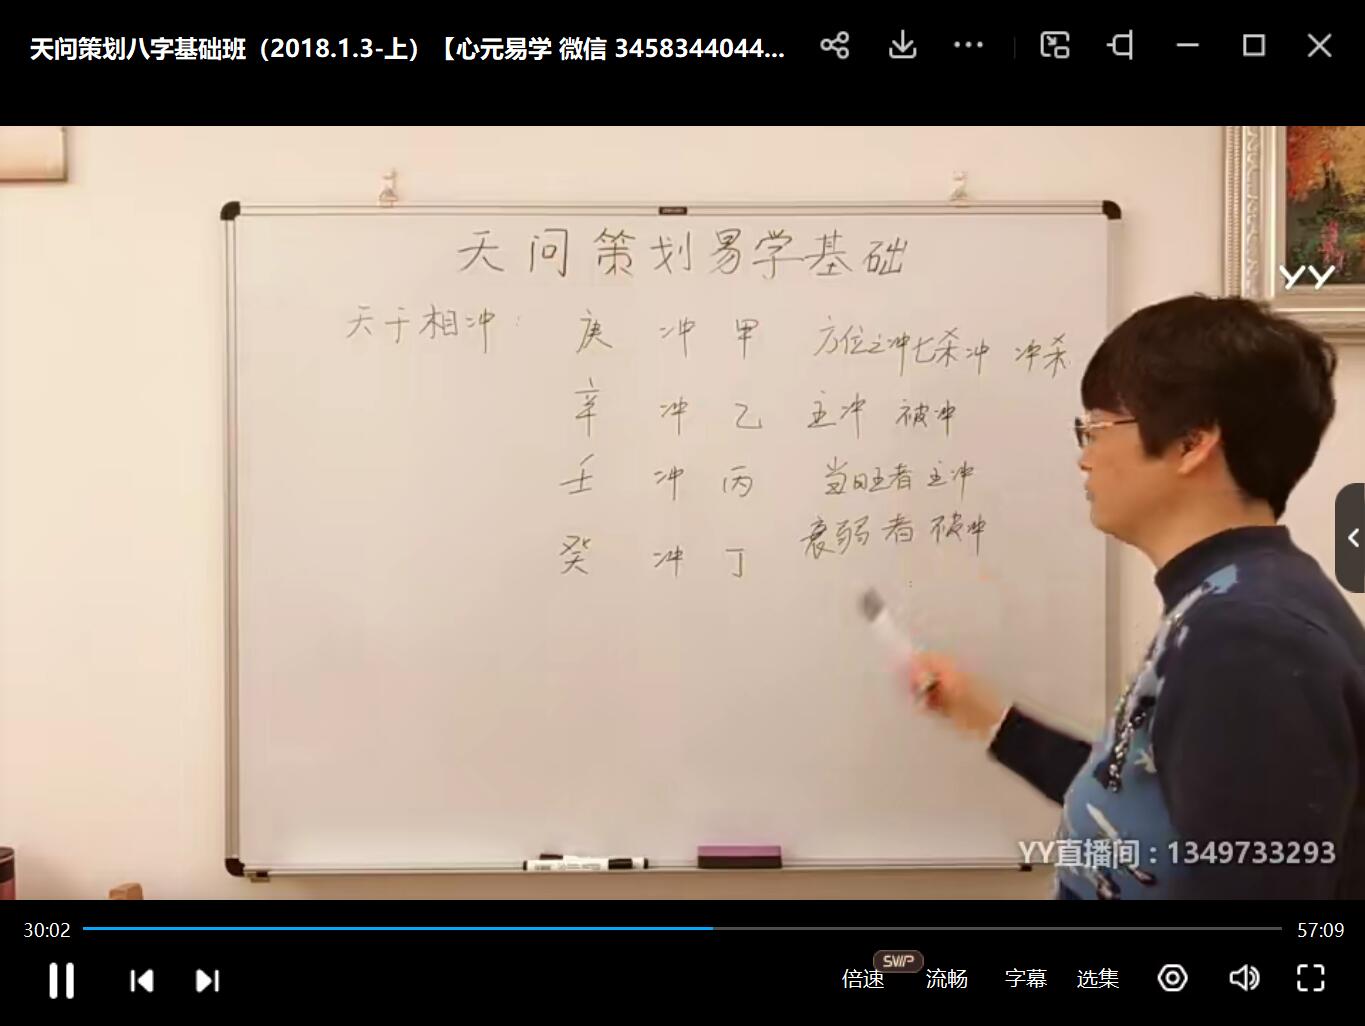 天问策划八字基础班（2018.1.3-上）【心元易学 微信 3458344044...
天问策划易学基础
天干相冲： 庚 冲 甲 方位之冲七杀冲 冲杀
辛 冲 乙 主冲 被冲
壬 冲 丙 当旺者 主冲
癸 冲 丁 衰弱者 被冲
YY
YY直播间：1349733293
30:02 57:09
倍速 SVIP 流畅 字幕 选集